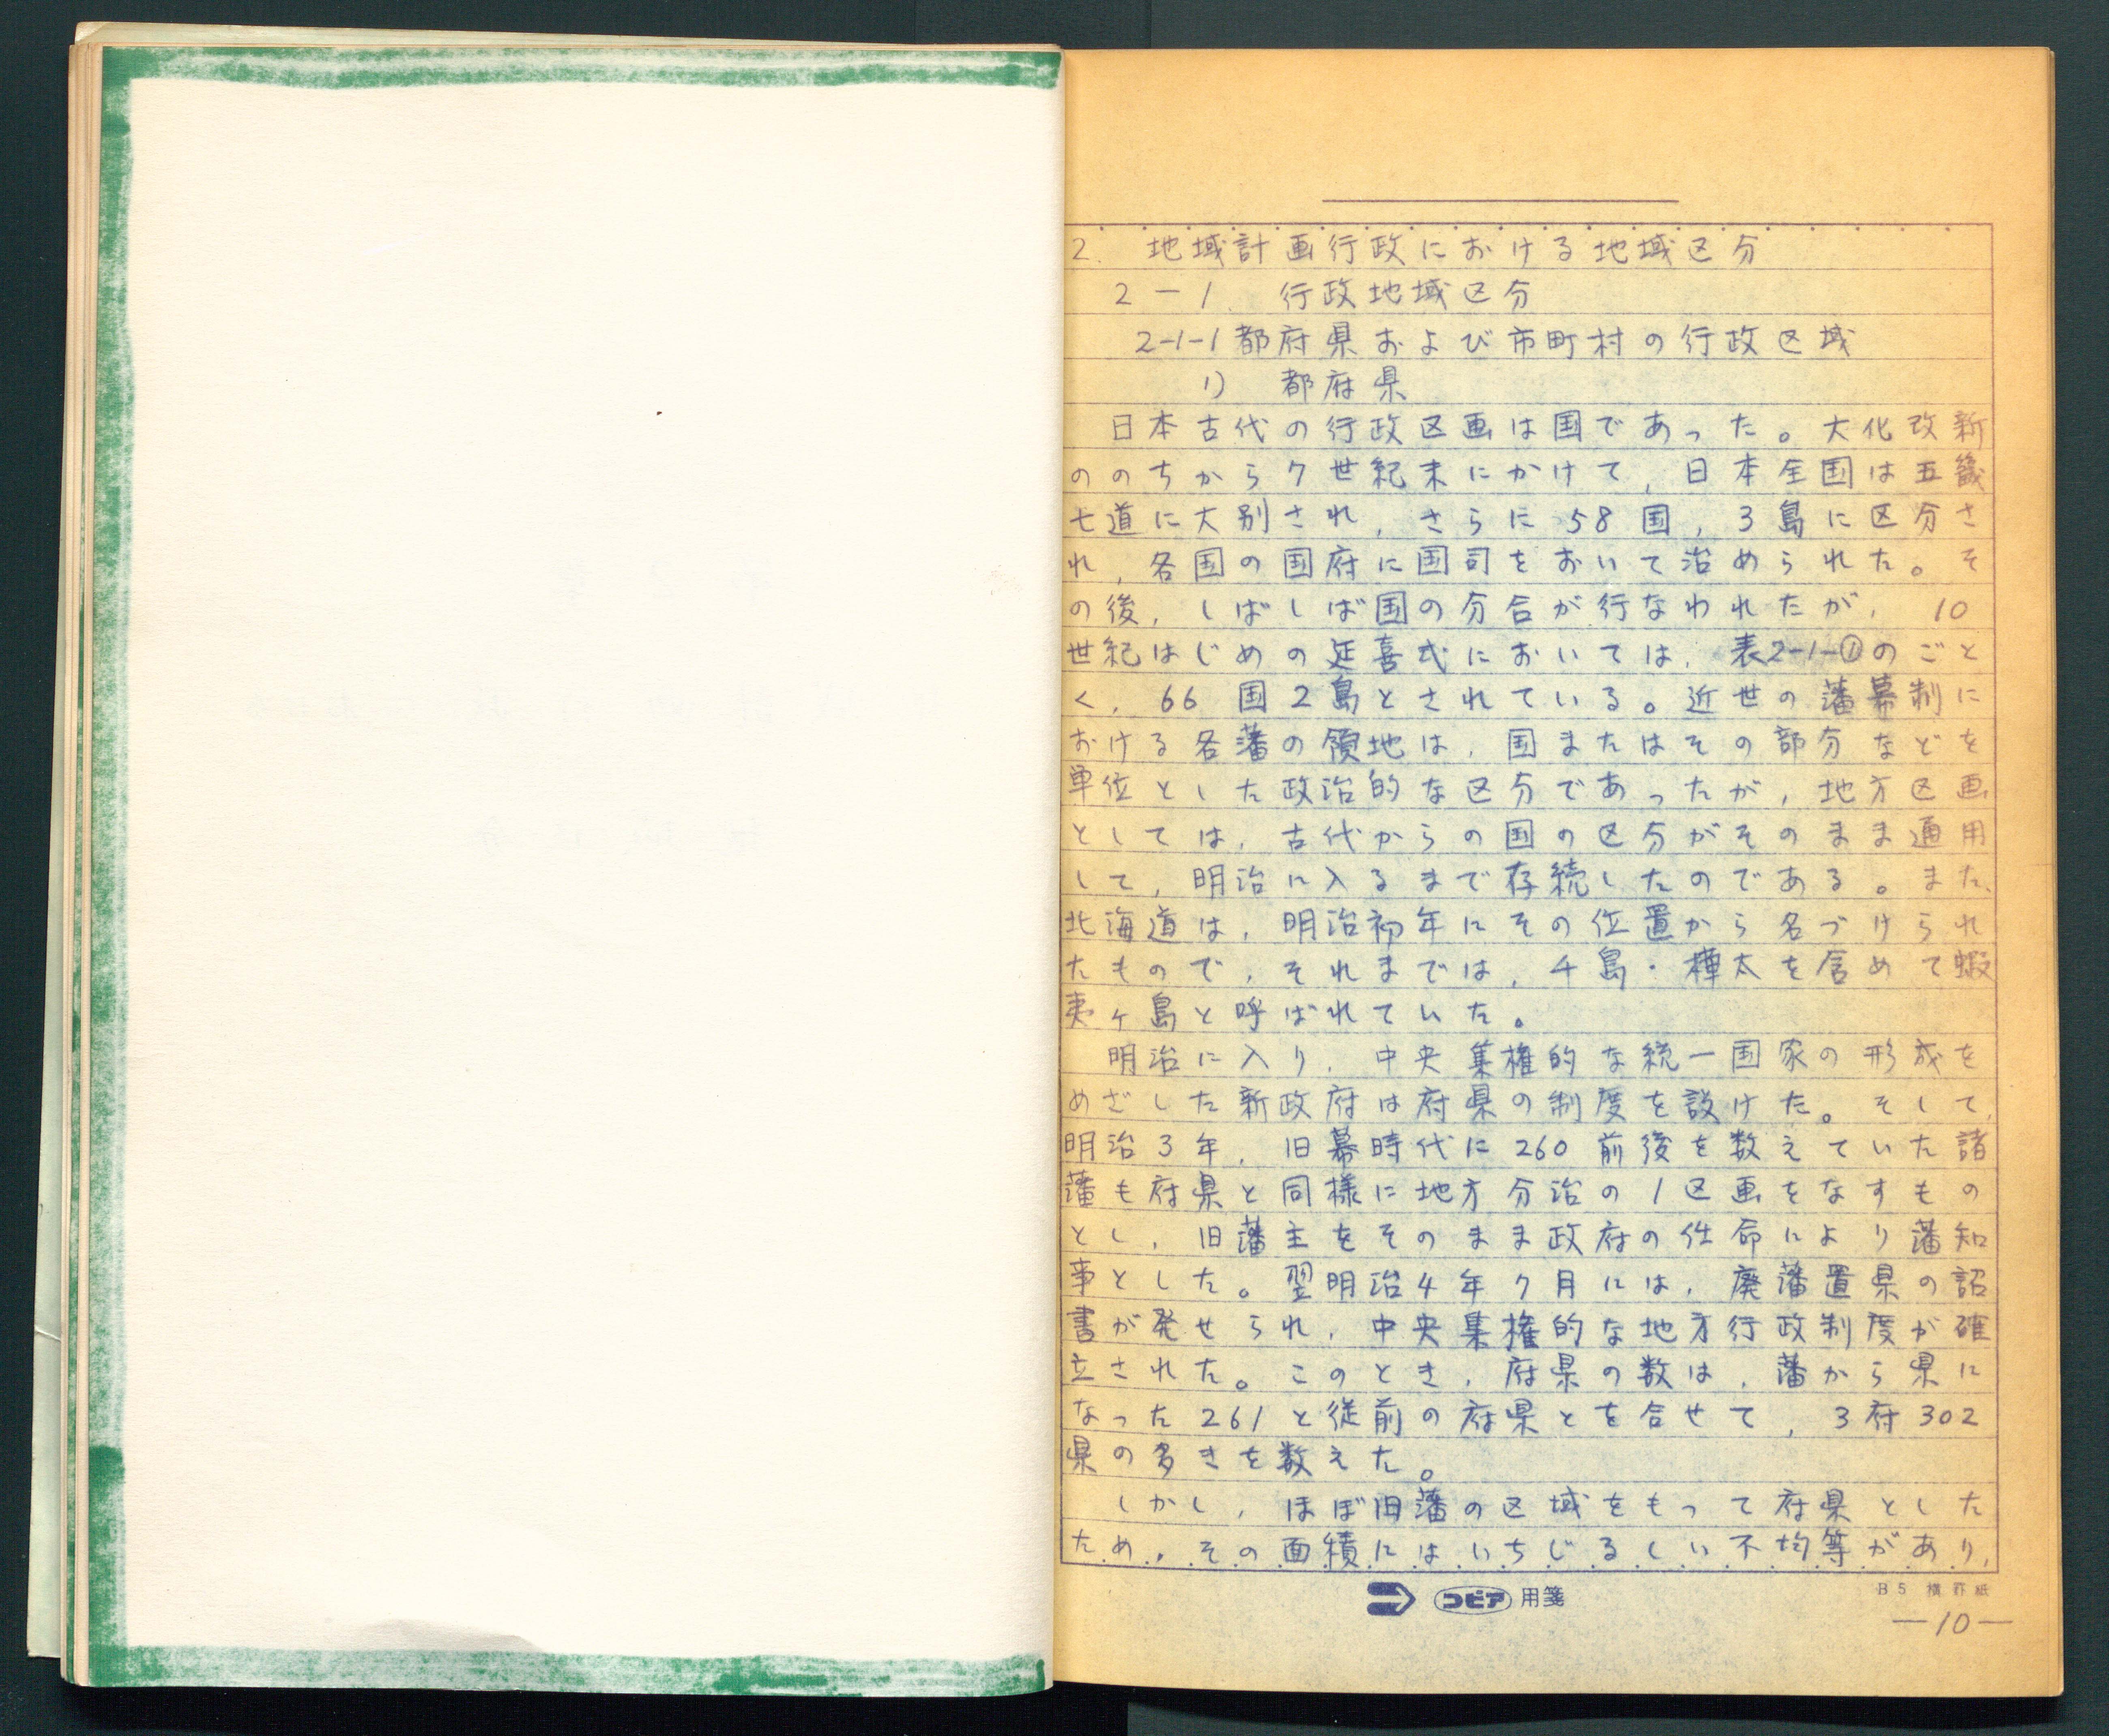 2. 地域計画行政における地域区分
2-1. 行政地域区分
2-1-1 都府県および市町村の行政区域
1) 都府県
日本古代の行政区画は国であった。大化改新
ののちから7世紀末にかけて,日本全国は五畿
七道に大別され,さらに58国,3島に区分さ
れ,各国の国府に国司をおいて治められた。そ
の後,しばしば国の分合が行なわれたが,10
世紀はじめの延喜式においては,表2-1-①のごと
く,66国2島とされている。近世の藩幕制に
おける各藩の領地は,国またはその部分などを
単位とした政治的な区分であったが,地方区画
としては,古代からの国の区分がそのまま通用
して,明治に入るまで存続したのである。また,
北海道は,明治初年にその位置から名づけられ
たもので,それまでは,千島・樺太を含めて蝦
夷ヶ島と呼ばれていた。
明治に入り,中央集権的な統一国家の形成を
めざした新政府は府県の制度を設けた。そして,
明治3年,旧幕時代に260前後を数えていた諸
藩も府県と同様に地方分治の1区画をなすもの
とし,旧藩主をそのまま政府の任命により藩知
事とした。翌明治4年7月には,廃藩置県の詔
書が発せられ,中央集権的な地方行政制度が確
立された。このとき,府県の数は,藩から県に
なった261と従前の府県とを合せて,3府302
県の多きを数えた。
しかし,ほぼ旧藩の区域をもって府県とした
ため,その面積にはいちじるしい不均等があり,
コピア用箋
B5 横罫紙
—10—